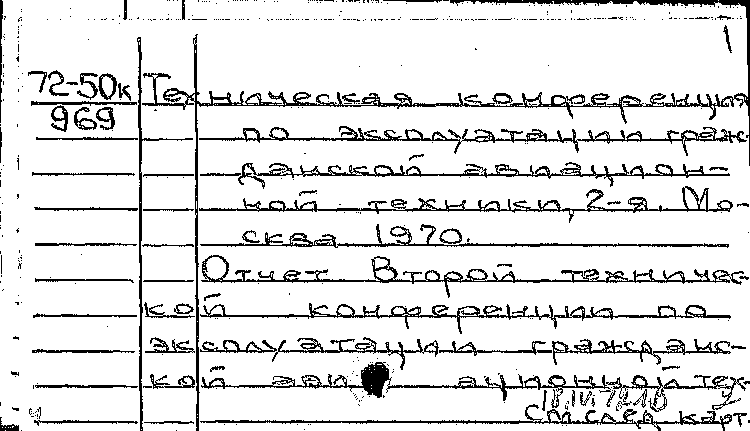 1
72-50к Техническая конференция
969 по эксплуатации граж-
данской авиацион-
ной техники, 2-я. Мо-
сква 1970.
Отчет Второй техничес-
кой конференции по
эксплуатации гражданс-
кой авиационной тех-
см. след. карт.